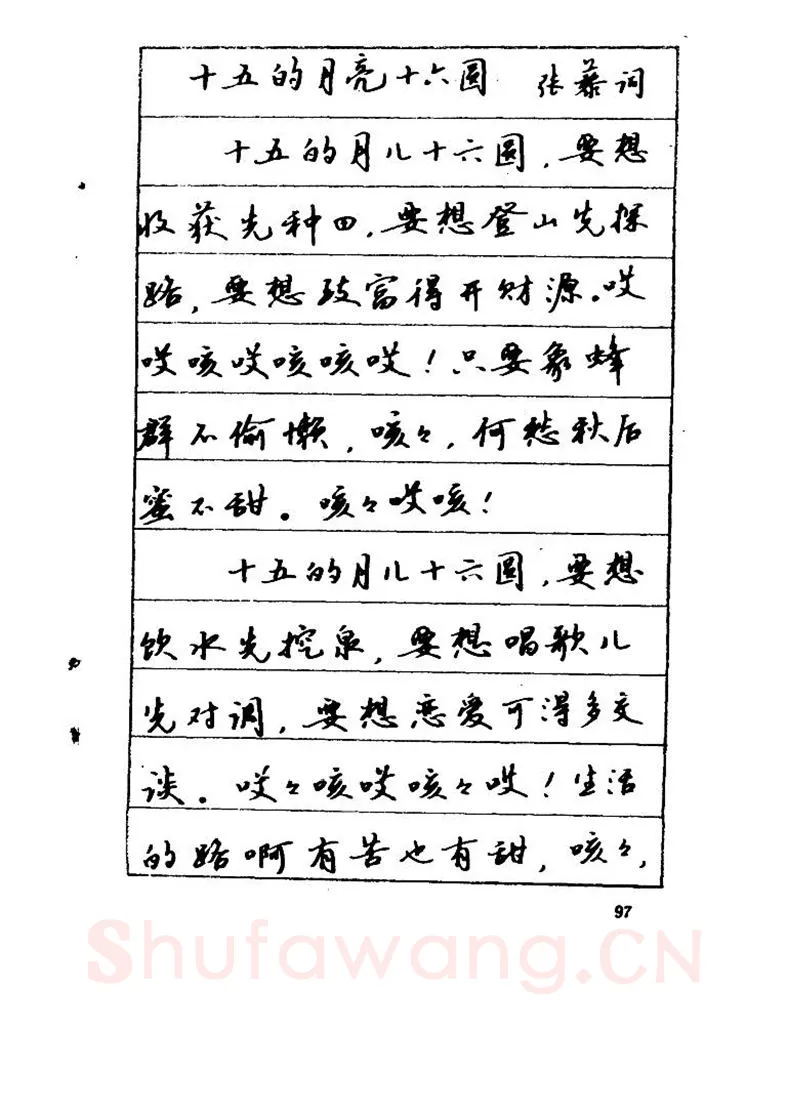 十五的月亮十六圆 张藜词
十五的月儿十六圆，要想
收获先种田，要想登山先探
路，要想致富得开财源。哎
哎咳哎咳咳哎！只要象蜂
群不偷懒，咳々，何愁秋后
蜜不甜。咳々哎咳！
十五的月儿十六圆，要想
饮水先挖泉，要想唱歌儿
先对调，要想恋爱可得多交
谈。哎々咳哎咳々哎！生活
的路啊有苦也有甜，咳々，
97
Shufawang.CN